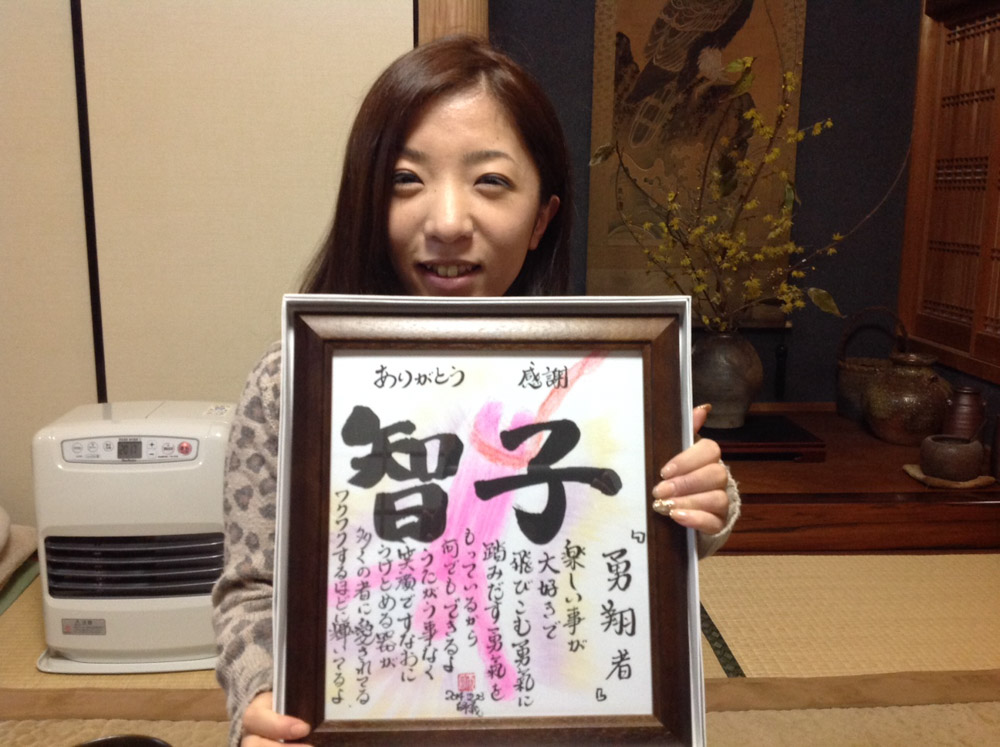 ありがとう 感謝
智子
『勇翔者』
楽しい事が
大好きで
飛びこむ勇氣に
踏みだす勇氣を
もっているから
何でもできるよ
うたがう事なく
笑顔ですなおに
うけとめる器が
多くの者に愛されてる
ワクワクするほどに輝いてるよ